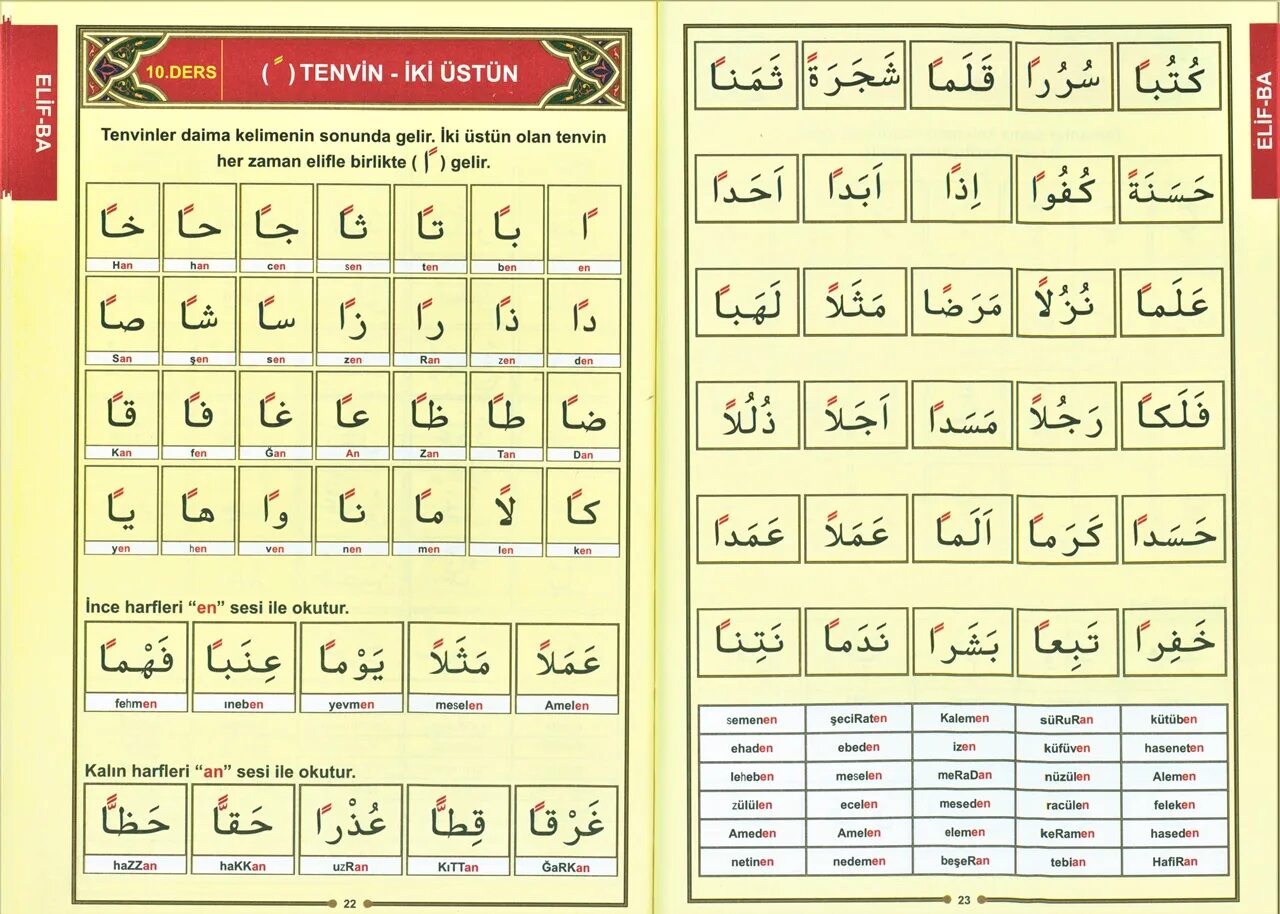 ELİF-BA
10.DERS ( ً ) TENVİN - İKİ ÜSTÜN
Tenvinler daima kelimenin sonunda gelir. İki üstün olan tenvin
her zaman elifle birlikte ( اً ) gelir.
اً بًا تًا ثًا جًا حًا خًا
Han han cen sen ten ben en
دًا ذًا رًا زًا سًا شًا صًا
San şen sen zen Ran zen den
ضًا طًا ظًا عًا غًا فًا قًا
Kan fen Ğan An Zan Tan Dan
كًا لًا مًا نًا وًا هًا يًا
yen hen ven nen men len ken
İnce harfleri “en” sesi ile okutur.
عَمَلًا مَثَلًا يَوْمًا عِنَبًا فَهْمًا
fehmen ıneben yevmen meselen Amelen
Kalın harfleri “an” sesi ile okutur.
غَرْقًا قِطًّا عُذْرًا حَقًّا حَظًّا
haZZan haKKan uzRan KıTTan ĞaRKan
22
ELİF-BA
كُتُبًا سُرُرًا قَلَمًا شَجَرَةً ثَمَنًا
حَسَنَةً كُفُوًا اِذًا اَبَدًا اَحَدًا
عَلَمًا نُزُلًا مَرَضًا مَثَلًا لَهَبًا
فَلَكًا رَجُلًا مَسَدًا اَجَلًا ذُلُلًا
حَسَدًا كَرَمًا اَلَمًا عَمَلًا عَمَدًا
خَفِرًا تَبِعًا بَشَرًا نَدَمًا نَتِنًا
semenen şeciRaten Kalemen süRuRan kütüben
ehaden ebeden izen küfüven haseneten
leheben meselen meRaDan nüzülen Alemen
zülülen ecelen meseden racülen feleken
Ameden Amelen elemen keRamen haseden
netinen nedemen beşeRan tebian HafiRan
23